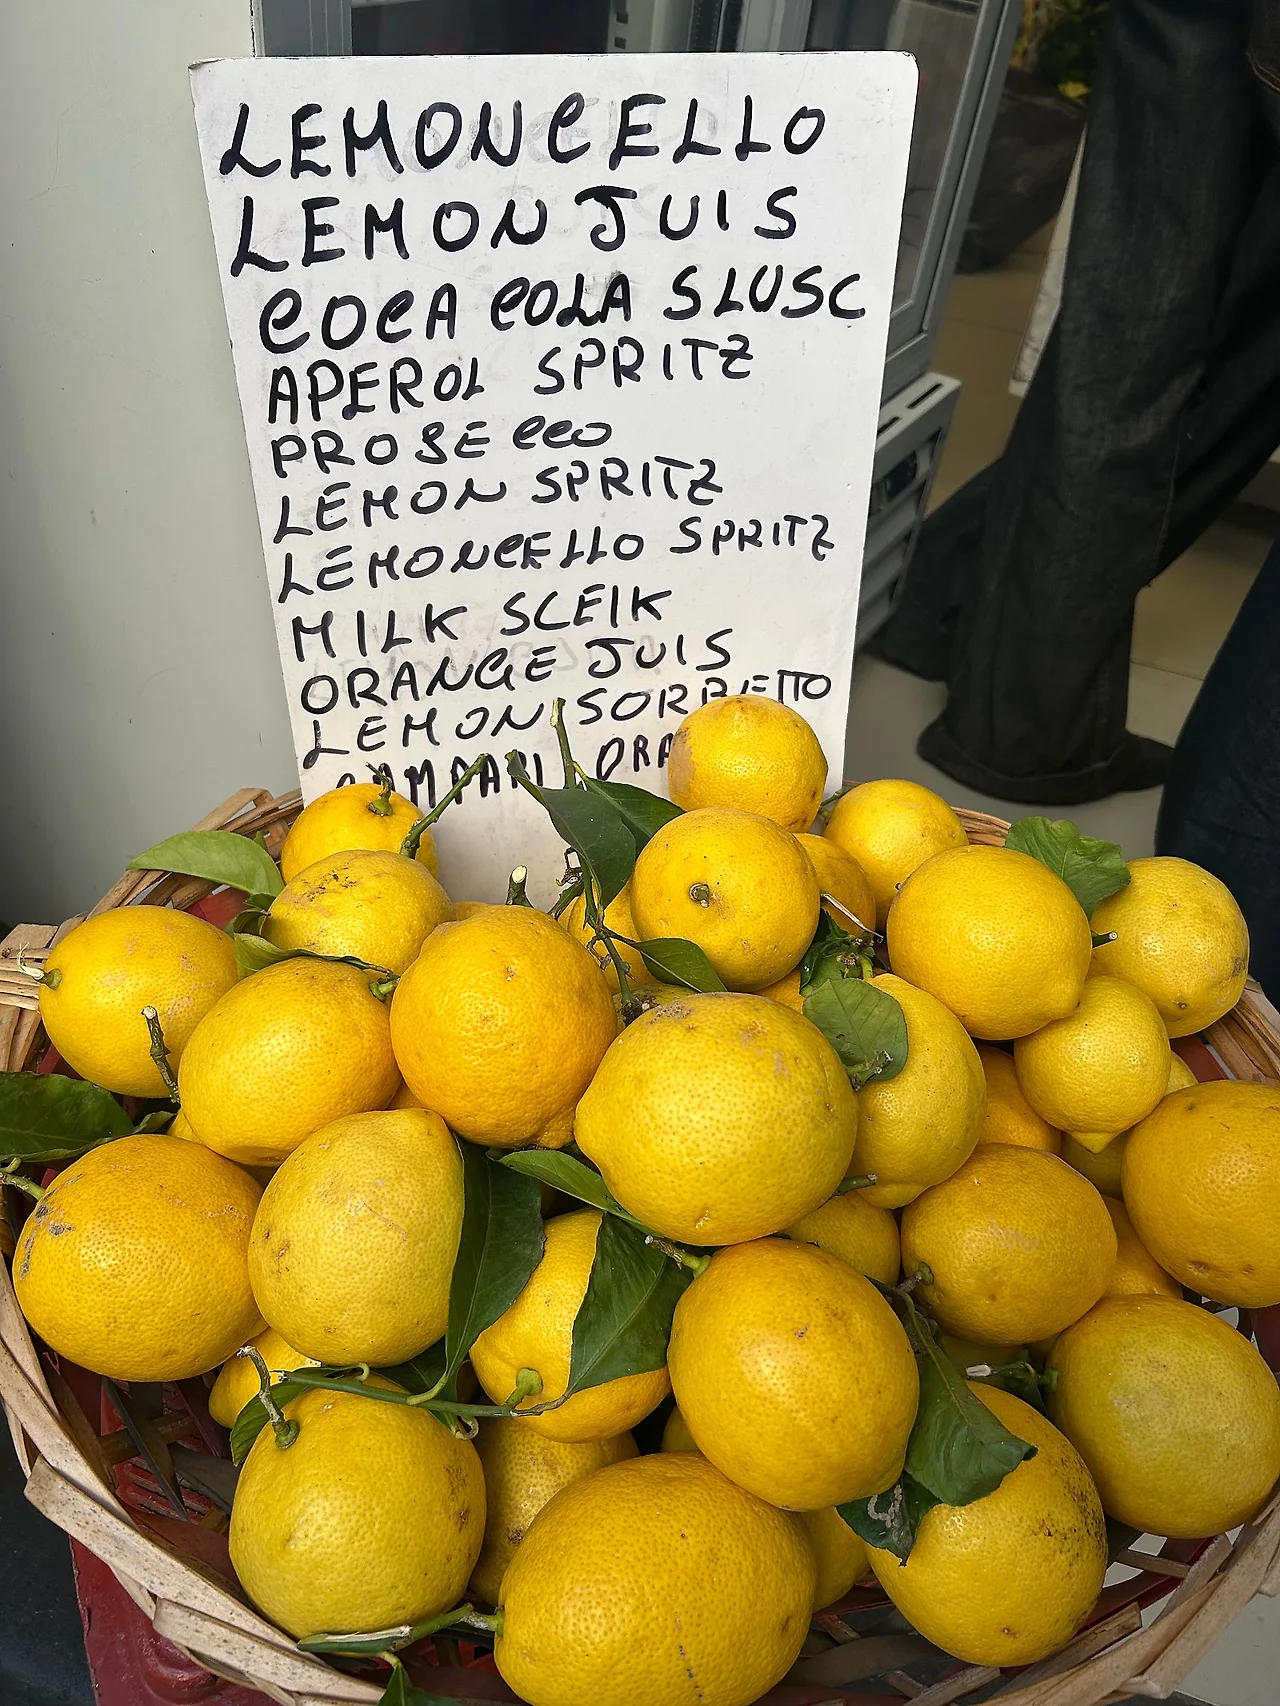 LEMONCELLO
LEMON JUIS
COCA COLA SLUSC
APEROL SPRITZ
PROSECCO
LEMON SPRITZ
LEMONCELLO SPRITZ
MILK SCEIK
ORANGE JUIS
LEMON SORBETTO
CAMPARI